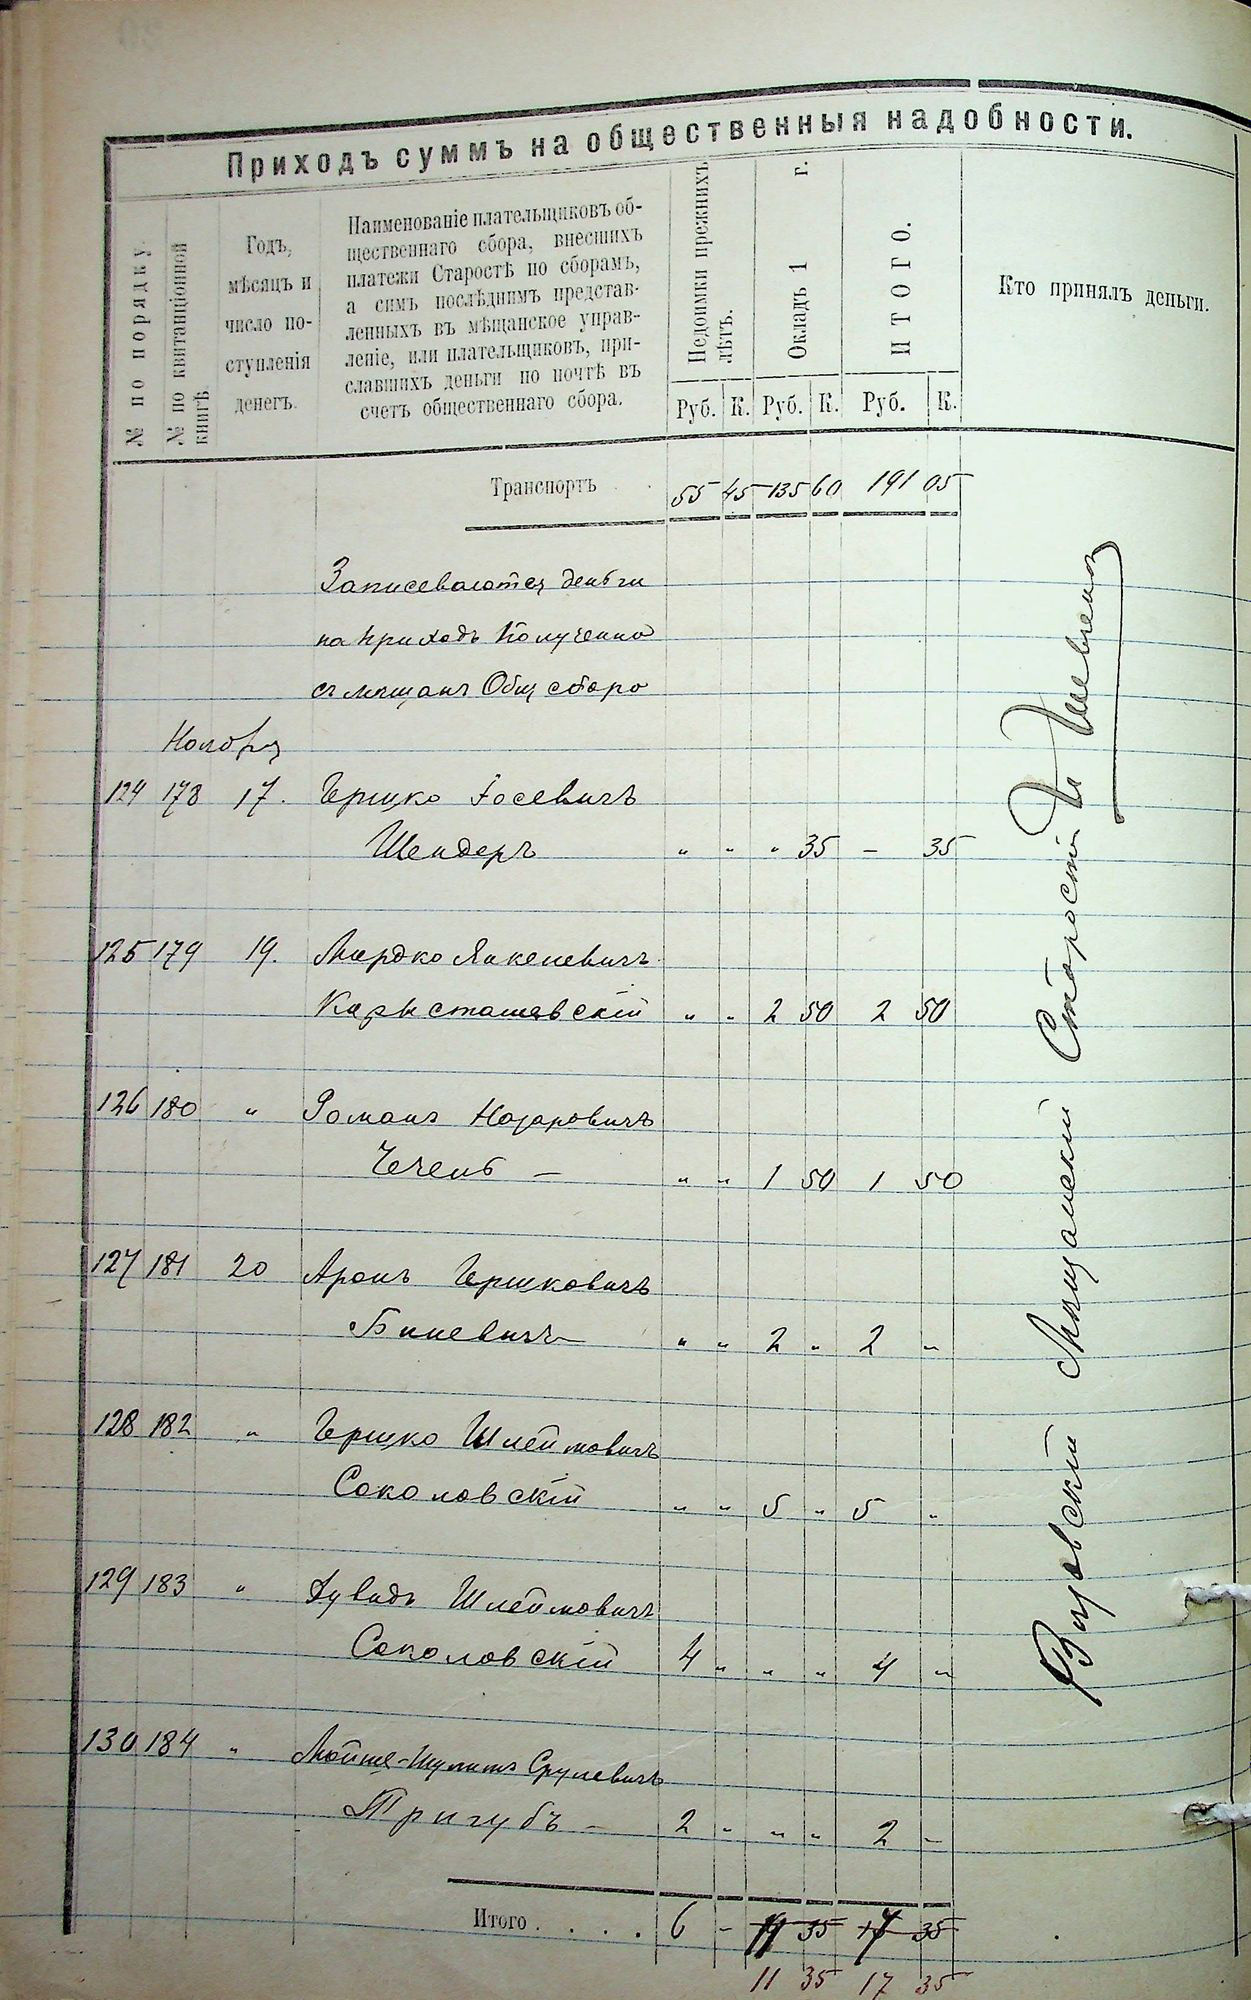 Приходъ суммъ на общественныя надобности.
№ по порядку.
№ по квитанціонной
книгѣ
Годъ,
мѣсяцъ и
число по-
ступленія
денегъ.
Наименованіе плательщиковъ об-
щественнаго сбора, внесшихъ
платежи Старостѣ по сборамъ,
а симъ послѣднимъ представ-
ленныхъ въ мѣщанское управ-
леніе, или плательщиковъ, при-
славшихъ деньги по почтѣ въ
счетъ общественнаго сбора.
Недоимки прежнихъ
лѣтъ.
Окладъ 1 г.
ИТОГО.
Кто принялъ деньги.
Руб. К. Руб. К. Руб. К.
Транспортъ . . 55 45 135 60 191 05
Записеваются деньги
на приходъ Полученно
съ мещанъ Общ сборо
Ноября
124 178 17. Гершко Іосевичъ
Шендеръ " " " 35 — 35
125 179 19. Мордко
" " 2 50 2 50
126 180 " Романъ Назаровичъ
Чечель — " " 1 50 1 50
127 181 20 Аронъ Гершковичъ
Биневичъ " " 2 " 2 "
128 182 " Гершко Шлеймовичъ
Соколовскій " " 5 " 5 "
129 183 " Шлеймовичъ
Соколовскій 4 " " " 4 "
130 184 " Мойше- Срулевичъ
Тригубъ — 2 " " " 2 —
Итого . . . . 6 - 11 35 17 35
11 35 17 35
Мещанскій Старости